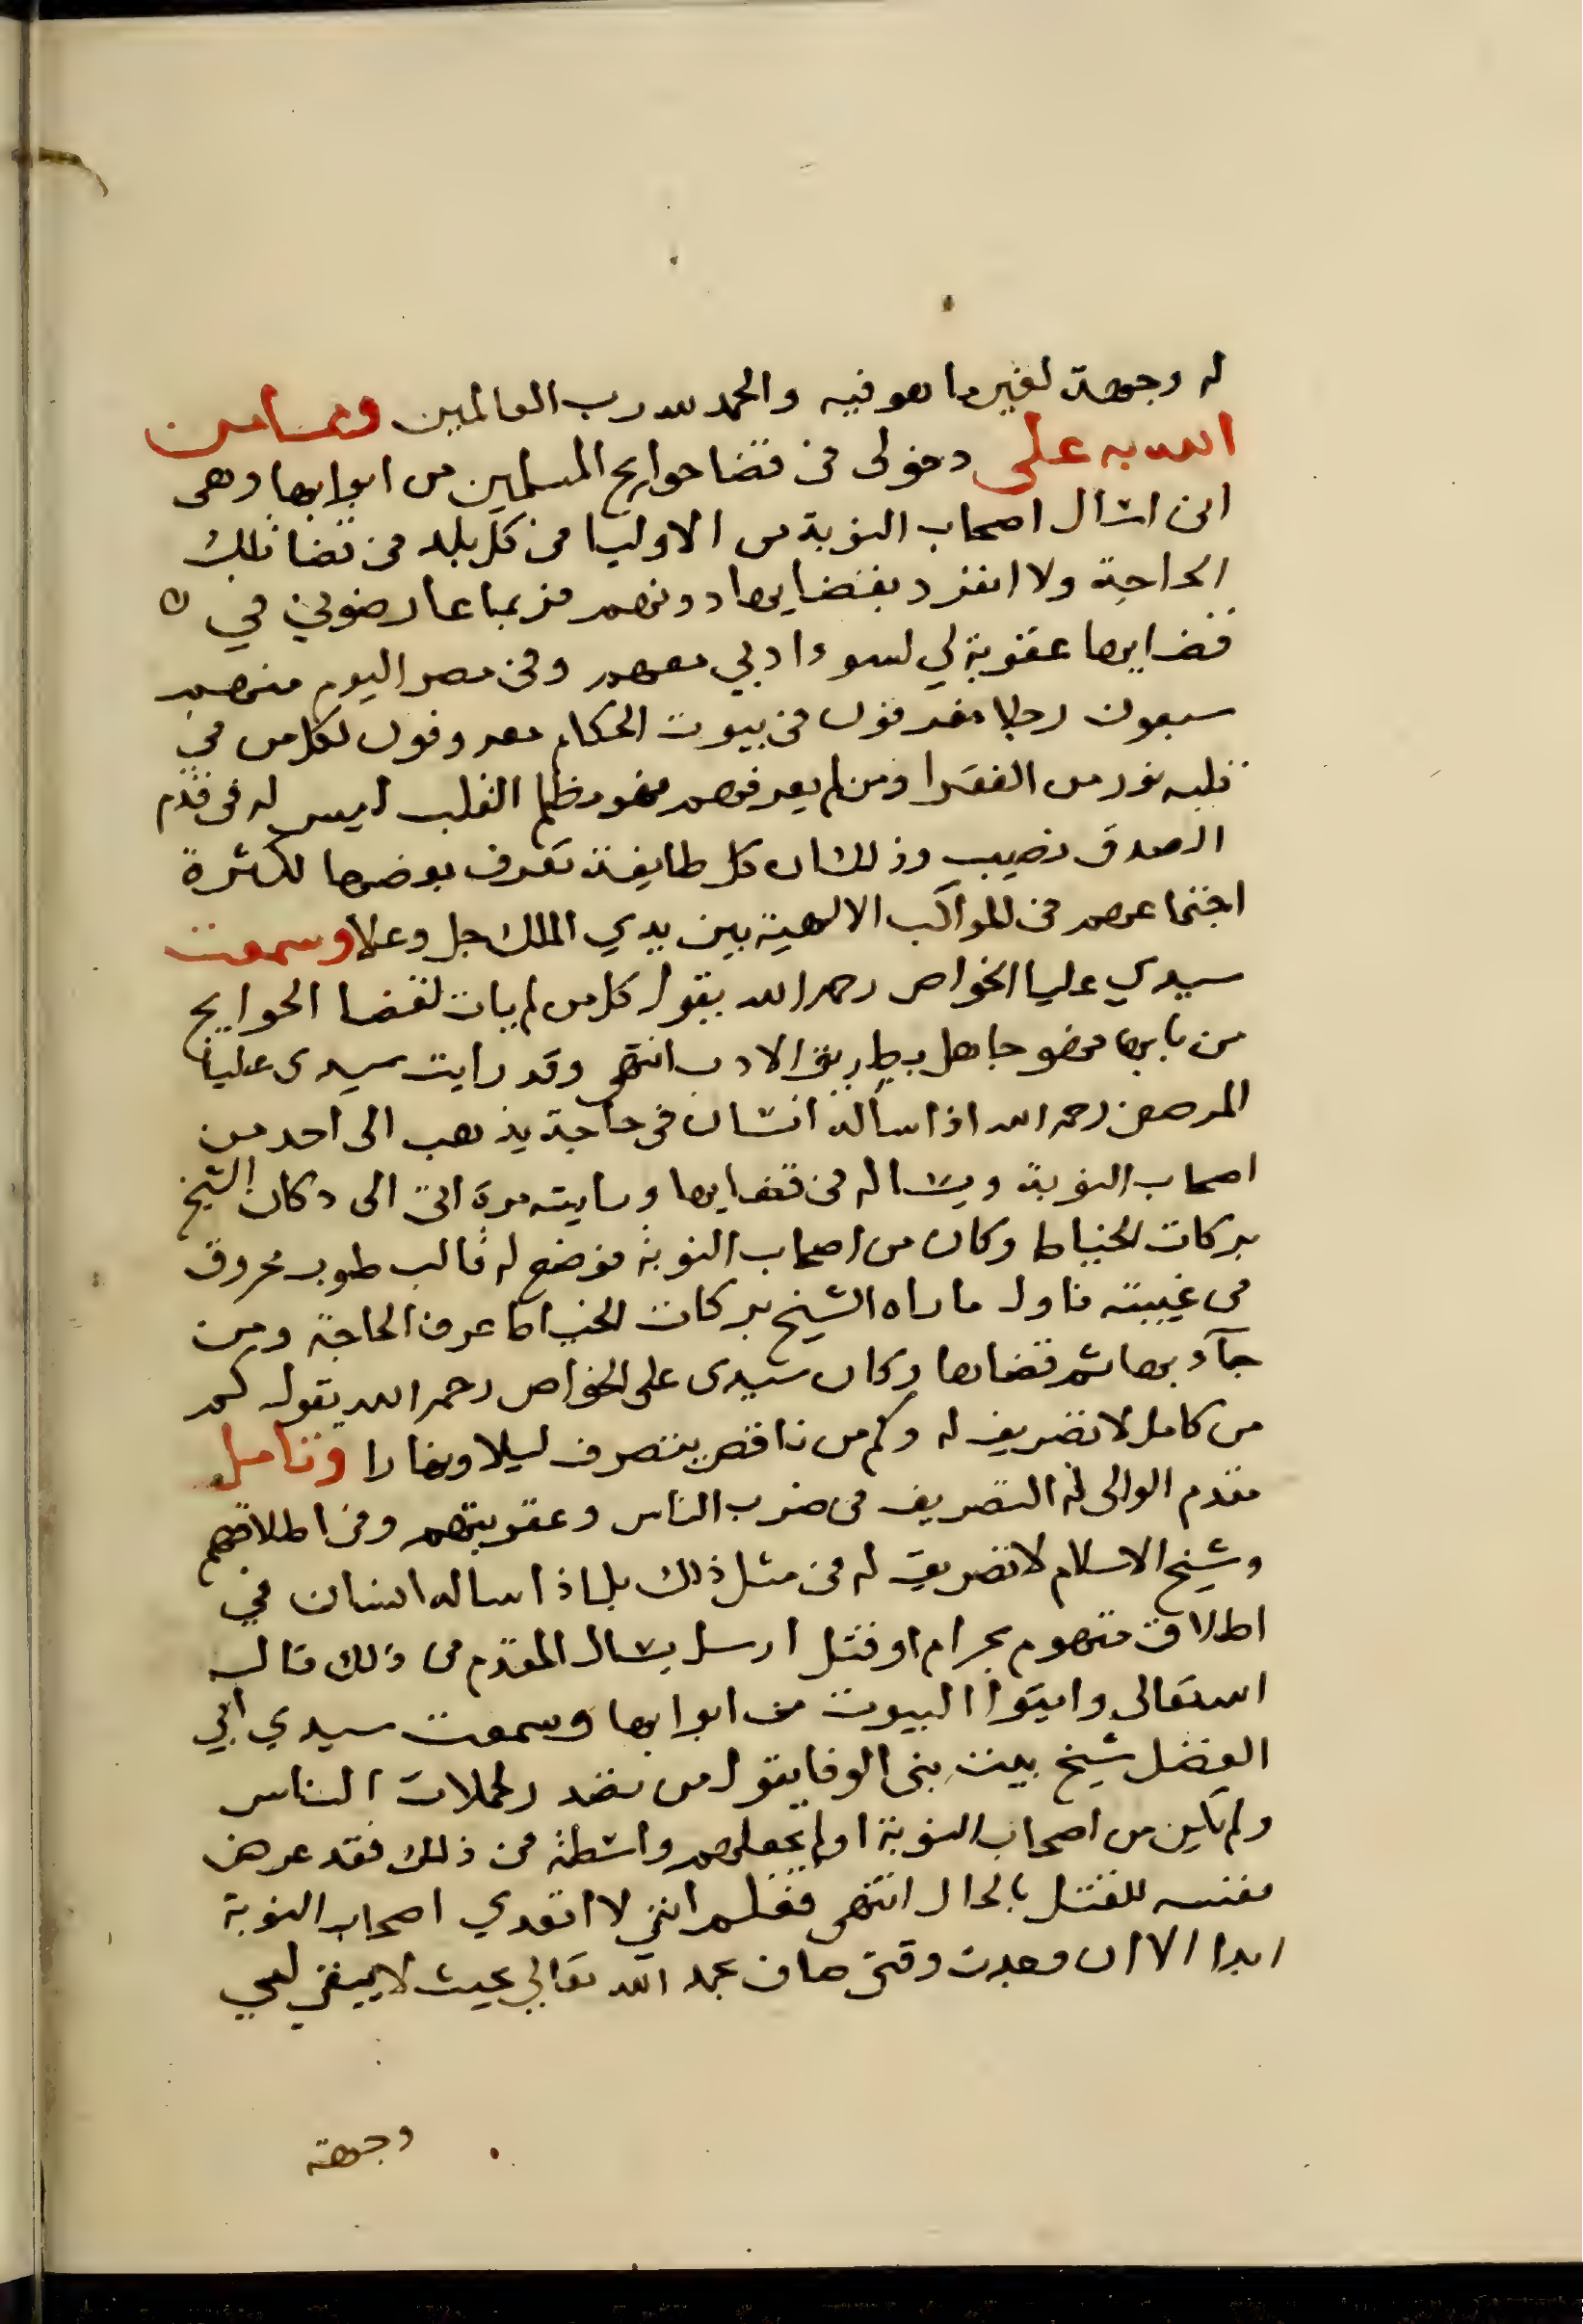 له وجهة لغير ما هو فيه والحمد لله رب العالمين ومما من
الله به على دخولى فى قضا حوايج المسلمين من ابوابها وهى
انى اسال اصحاب النوبة من الاوليا فى كل بلد فى قضا تلك
الحاجة ولا انفرد بقضايها دونهم فربما عارضونى في
قضايها عقوبة لي لسوء ادبي معهم وفى مصر اليوم منهم
سبعون رجلا مفرقون فى بيوت الحكام معروفون لكل من في
قلبه نور من الفقرا ومن لم يعرفهم فهو مظلم القلب ليس له فى قدم
الصدق نصيب وذلك ان كل طايفة تعرف بعضها لكثرة
اجتماعهم فى المواكب الالهية بين يدي الملك جل وعلا وسمعت
سيدي عليا الخواص رحمه الله يقول كل من لم يات لقضا الحوايج
من بابها فهو جاهل بطريق الادب انتهى وقد رايت سيدى عليا
المرصفى رحمه الله اذا سأله انسان فى حاجة يذهب الى احد من
اصحاب النوبة ويساله فى قضايها ورايته مرة اتى الى دكان الشيخ
بركات الخياط وكان من اصحاب النوبة فوضع له قالب طوب محروق
فى غيبته فاول ما راه الشيخ بركات الخياط عرف الحاجة ومن
جآء بها ثم قضاها وكان سيدى على الخواص رحمه الله يقول كم
من كامل لا تصريف له وكم من ناقص يتصرف ليلا ونهارا وتامل
مقدم الوالى له التصريف فى ضرب الناس وعقوبتهم وفى اطلاقهم
وشيخ الاسلام لا تصريف له فى مثل ذلك بل اذا ساله انسان في
اطلاق متهوم بحرام او قتل ارسل يسال المقدم فى ذلك قال
الله تعالى وايتوا البيوت من ابوابها وسمعت سيدي ابي
الفضل شيخ بيت بنى الوفا يقول من تصدر لحملات الناس
ولم يكن من اصحاب النوبة او لم يجعلهم واسطة فى ذلك فقد عرض
نفسه للقتل بالحال انتهى فعلم اننى لا اتعدي اصحاب النوبة
ابدا الا ان وجدت وقتى صاف بحمد الله تعالي بحيث لا يبقى لي
وجهة